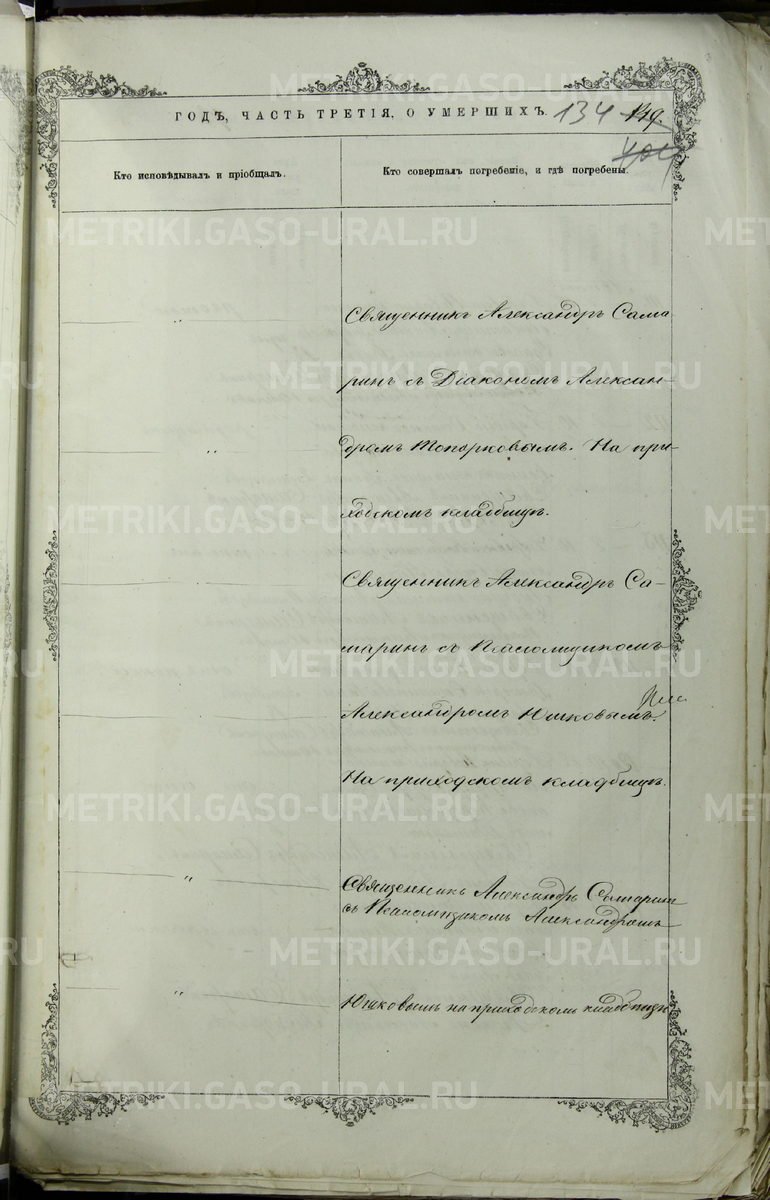 ГОДЪ, ЧАСТЬ ТРЕТІЯ, О УМЕРШИХЪ. 134
Кто исповѣдывалъ и пріобщалъ.
Кто совершалъ погребеніе, и гдѣ погребены.
Священникъ Александръ Сама
ринъ съ Діакономъ Алексан-
дромъ Топорковымъ. На при-
ходскомъ кладбищѣ.
Священникъ Александръ Са-
маринъ съ Псаломщикомъ
Александромъ Юшковымъ.
На приходскомъ кладбищѣ.
Священникъ Александръ Самаринъ
съ Псаломщикомъ Александромъ
Юшковымъ на приходскомъ кладбищѣ
METRIKI.GASO-URAL.RU